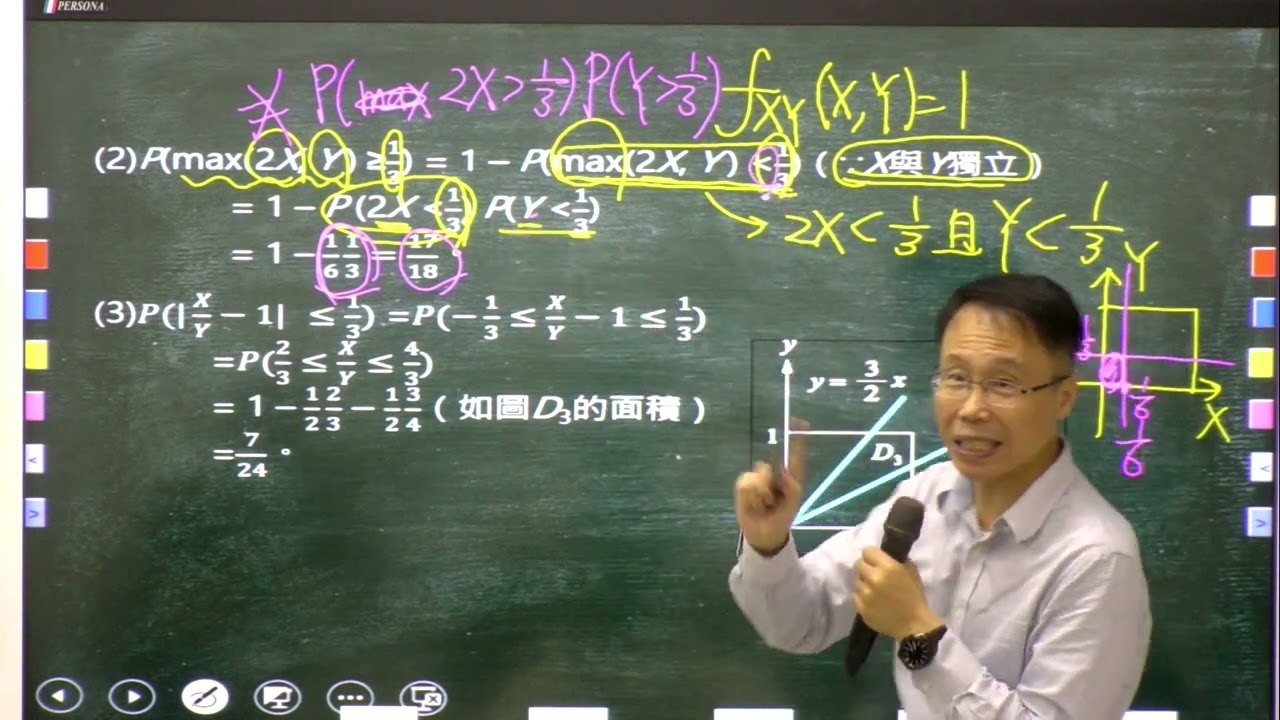 PERSONA
≠ P(max 2X > 1/3) P(Y > 1/3) f_XY(X,Y)=1
(2) P(max(2X, Y) ≥ 1/3) = 1 − P(max(2X, Y) < 1/3) (∵X與Y獨立)
= 1 − P(2X < 1/3) P(Y < 1/3)
→ 2X < 1/3 且 Y < 1/3
= 1 − 1/6 1/3 = 17/18。
(3) P(|X/Y − 1| ≤ 1/3) = P(−1/3 ≤ X/Y − 1 ≤ 1/3)
= P(2/3 ≤ X/Y ≤ 4/3)
= 1 − 1/2 2/3 − 1/2 3/4 (如圖D₃的面積)
= 7/24。
y
y = 3/2 x
1
D₃
Y
1/3
X
1/6
1/6